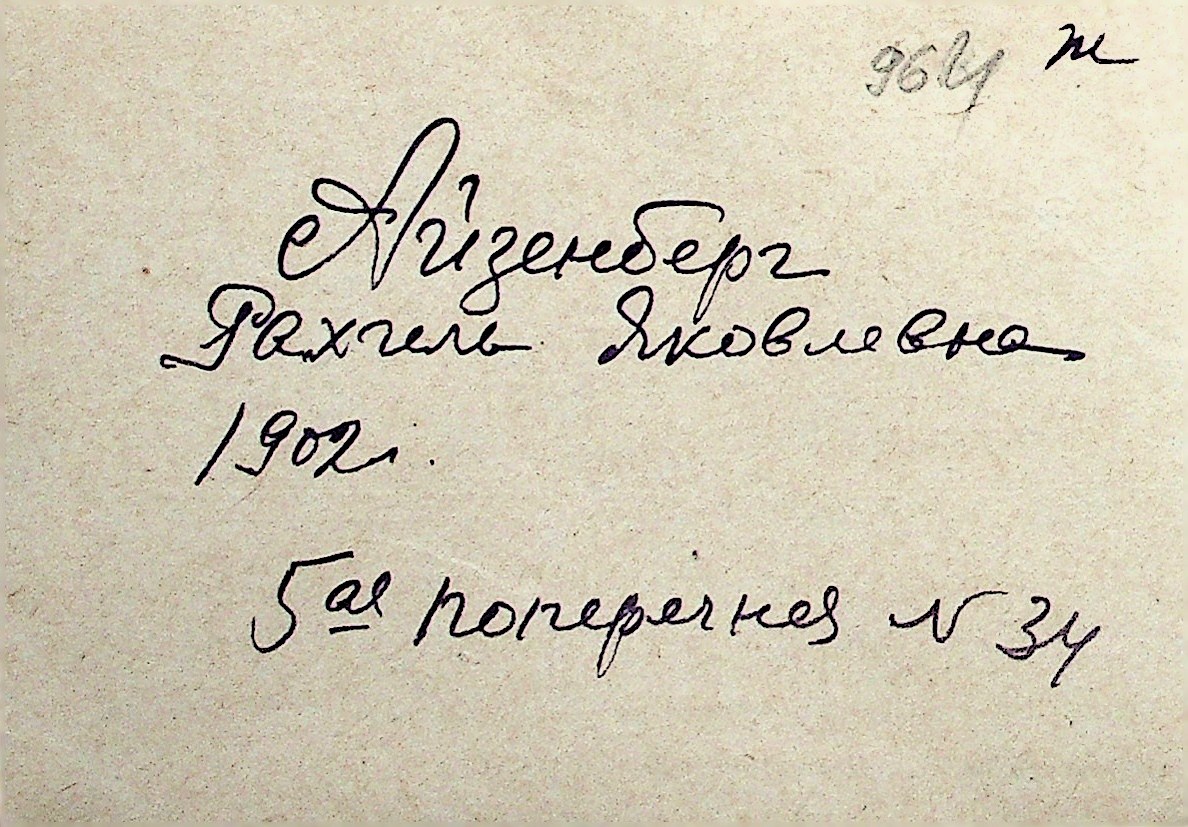 Айзенберг
Рахиль Яковлевна
1902г.
5ая поперечная N 34